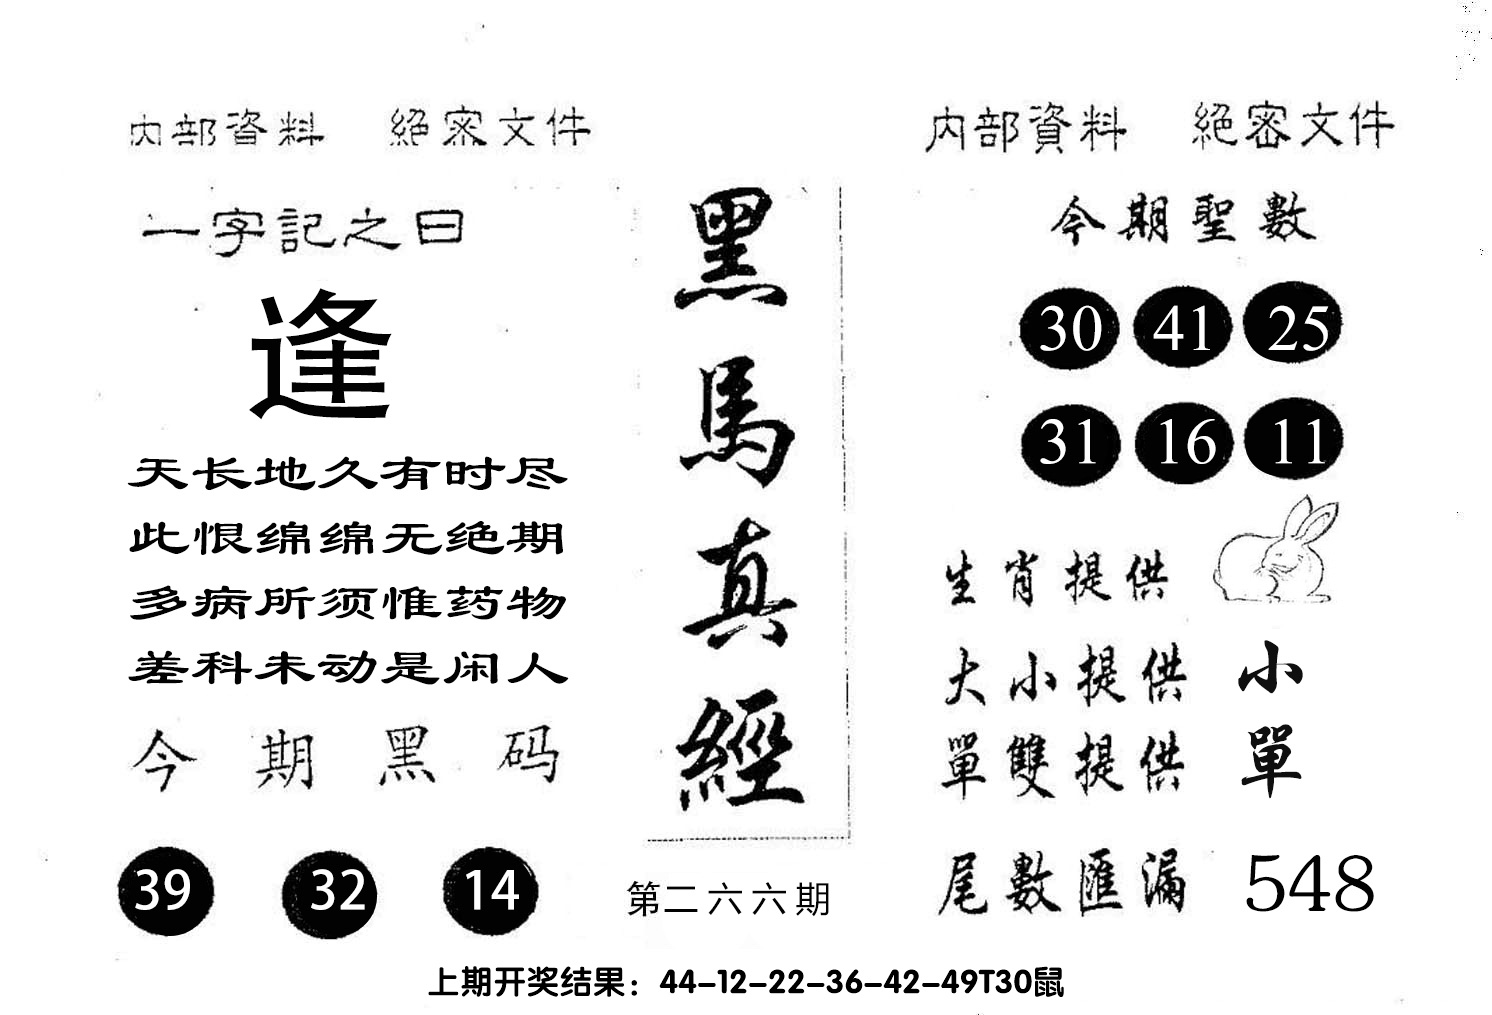 内部資料 絕密文件
一字記之曰
逢
天长地久有时尽
此恨绵绵无绝期
多病所须惟药物
差科未动是闲人
今期黑码
39 32 14
黑馬真經
第二六六期
内部資料 絕密文件
今期聖數
30 41 25
31 16 11
生肖提供
大小提供 小
單雙提供 單
尾數匯漏 548
上期开奖结果：44-12-22-36-42-49T30鼠